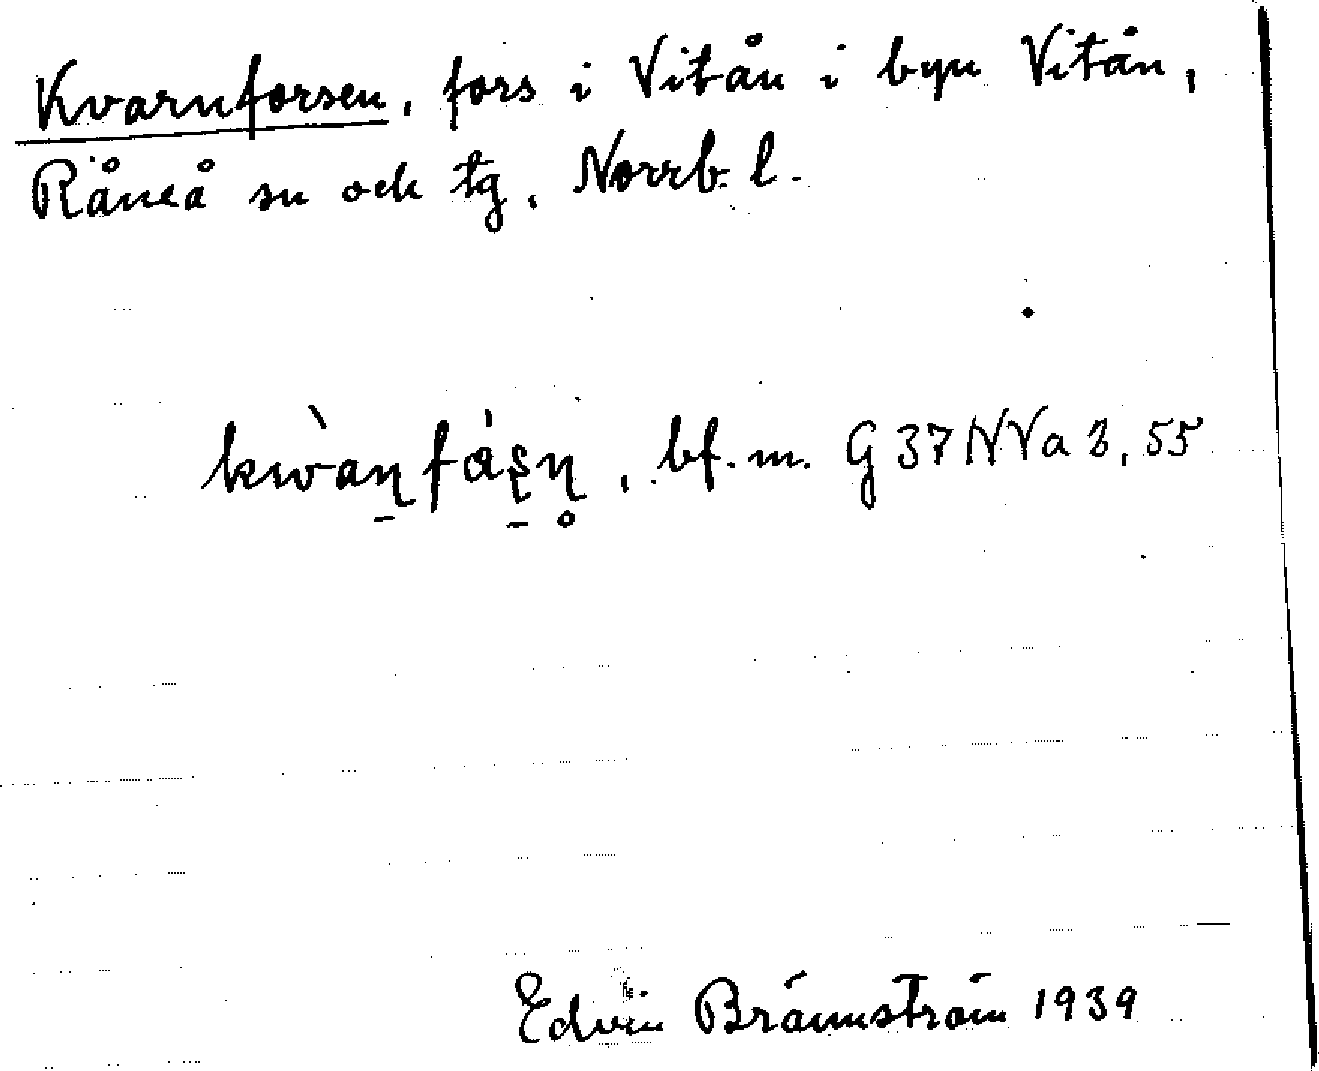 Kvarnforsen, fors i Vitån i byn Vitån,
Råneå sn och tg, Norrb. l.
kẁaɳfáʂɳ̥, bf. m. G 37 NVa 3, 55
Edvin Brännström 1939